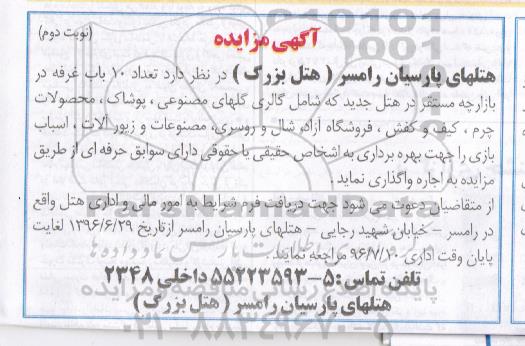 آگهی مزایده
(نوبت دوم)
هتلهای پارسیان رامسر ( هتل بزرگ ) در نظر دارد تعداد ۱۰ باب غرفه در
بازارچه مستقر در هتل جدید که شامل گالری گلهای مصنوعی ، پوشاک ، محصولات
چرم ، کیف و کفش ، فروشگاه آزاد، شال و روسری، مصنوعات و زیور آلات ، اسباب
بازی را جهت بهره برداری به اشخاص حقیقی یا حقوقی دارای سوابق حرفه ای از طریق
مزایده به اجاره واگذاری نماید .
از متقاضیان دعوت می شود جهت دریافت فرم شرایط به امور مالی و اداری هتل واقع
در رامسر – خیابان شهید رجایی – هتلهای پارسیان رامسر ازتاریخ ۱۳۹۶/۶/۲۹ لغایت
پایان وقت اداری ۹۶/۷/۱۰ مراجعه نمایند .
تلفن تماس : ۵–۵۵۲۲۳۵۹۳ داخلی ۲۳۴۸
هتلهای پارسیان رامسر ( هتل بزرگ )
۰۲۱–۸۸۳۴۹۶۷۰–۵